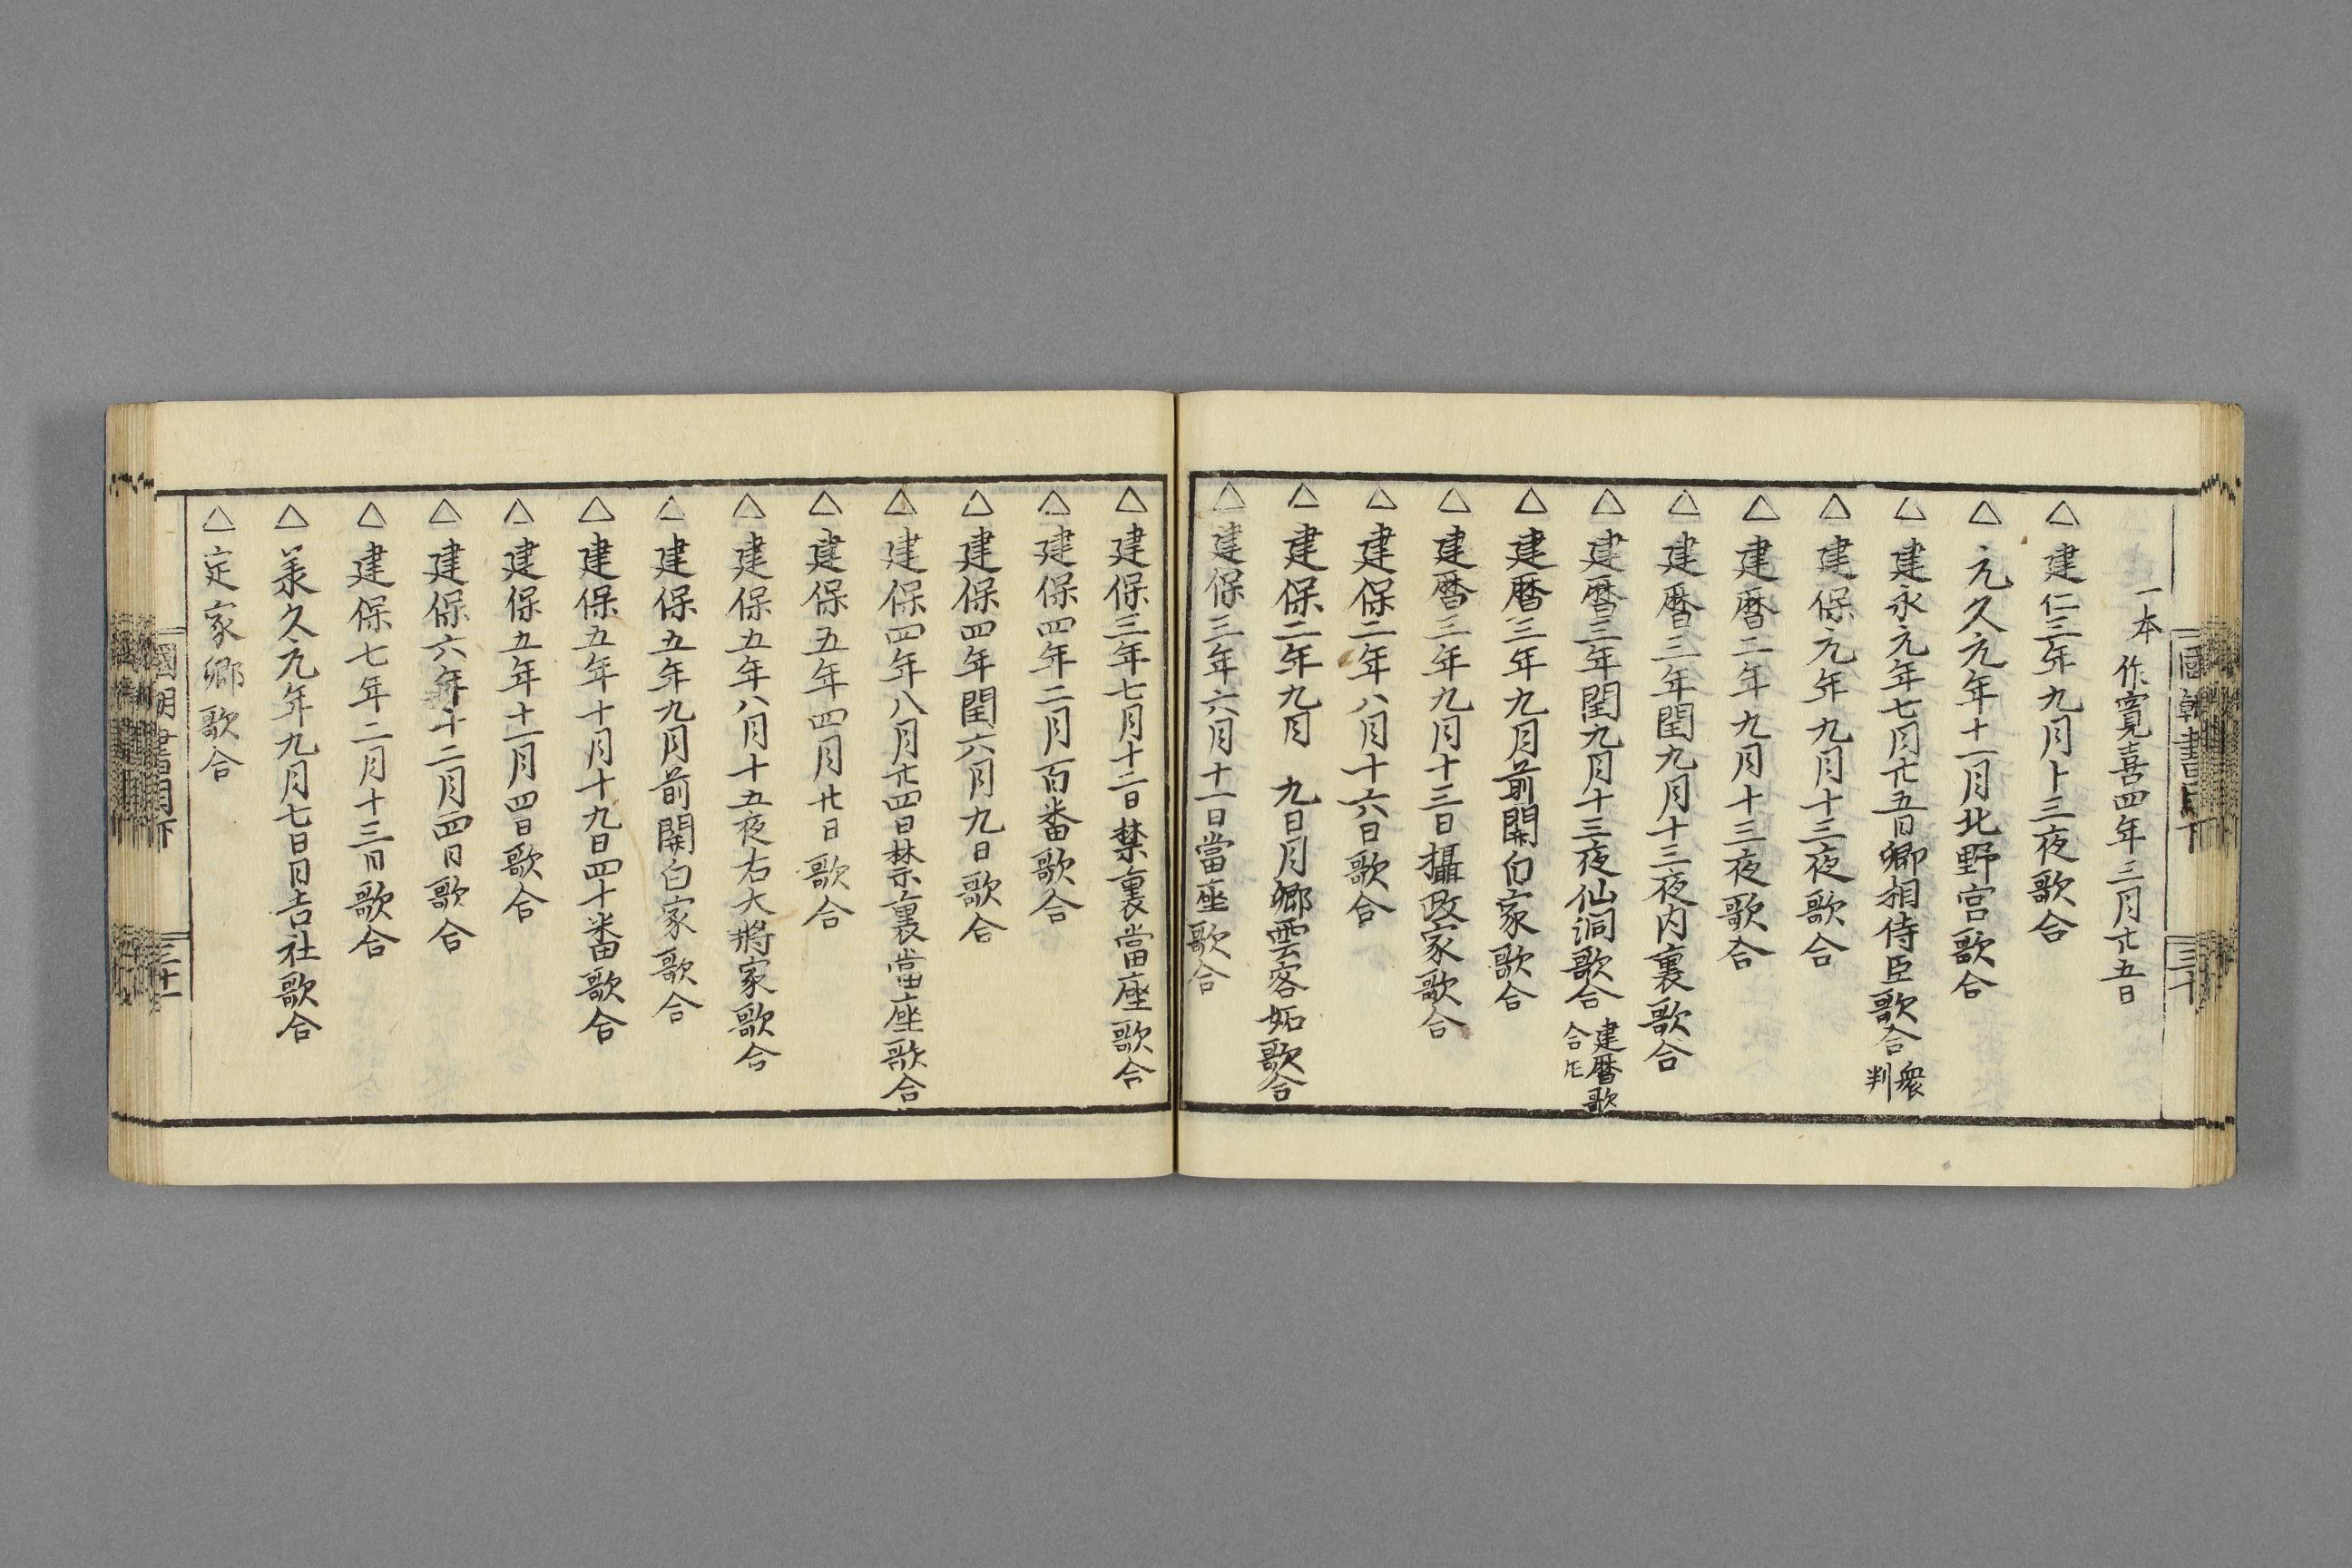 國朝書目下
三十
一本作寛喜四年三月廿五日
△建仁三年九月十三夜歌合
△元久元年十一月北野宮歌合
△建永元年七月廿五日卿相侍臣歌合 衆判
△建保元年九月十三夜歌合
△建暦二年九月十三夜歌合
△建暦三年閏九月十三夜内裏歌合
△建暦三年閏九月十三夜仙洞歌合 建暦歌合
△建暦三年九月前關白家歌合
△建暦三年九月十三日攝政家歌合
△建保二年八月十六日歌合
△建保二年九月 九日月卿雲客妬歌合
△建保三年六月十一日當座歌合
△建保三年七月十二日禁裏當座歌合
△建保四年二月百番歌合
△建保四年閏六月九日歌合
△建保四年八月廿四日禁裏當座歌合
△建保五年四月廿日歌合
△建保五年八月十五夜右大將家歌合
△建保五年九月前關白家歌合
△建保五年十月十九日四十番歌合
△建保五年十一月四日歌合
△建保六年十二月四日歌合
△建保七年二月十三日歌合
△承久元年九月七日日吉社歌合
△定家卿歌合
國朝書目下
三十一